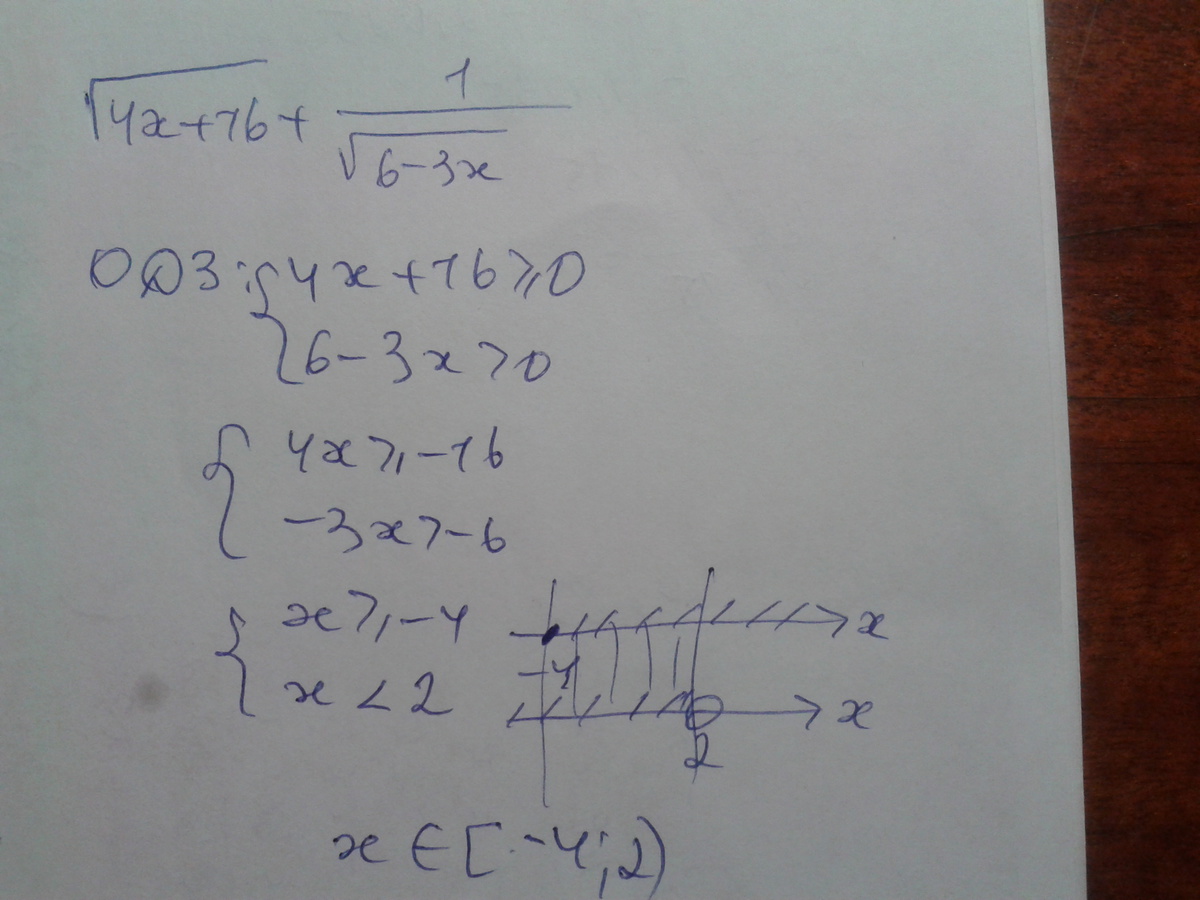 √(4x+16) + 1/√(6-3x)
ОДЗ: {4x+16⩾0
{6-3x>0
{4x⩾-16
-3x>-6
{x⩾-4
x<2
x
-4
x
2
x∈[-4;2)